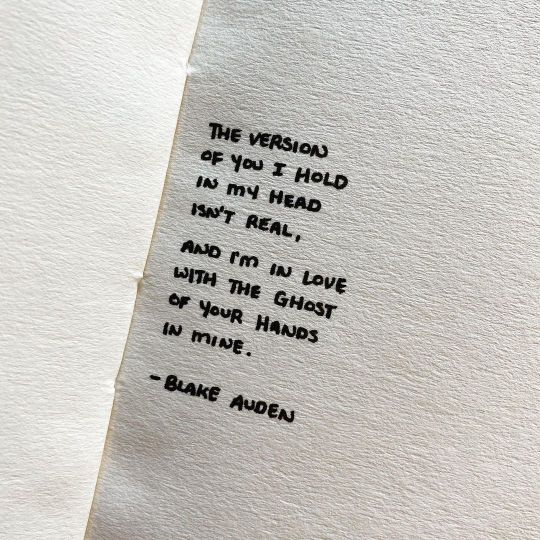 THE VERSION
OF YOU I HOLD
IN MY HEAD
ISN'T REAL,
AND I'M IN LOVE
WITH THE GHOST
OF YOUR HANDS
IN MINE.
- BLAKE AUDEN